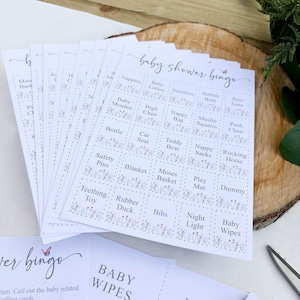 baby shower bingo
Nappies Lotion Bubble Bath
Baby Monitor High Chair Nappy Bag Muslin Squares Push Chair
Bottle Car Seat Teddy Bear Nappy Sacks Rocking Horse
Safety Pins Blanket Moses Basket Play Mat Dummy
Teething Toy Rubber Duck Bibs Night Light Baby Wipes
wer bingo
BABY WIPES
Call out the baby related